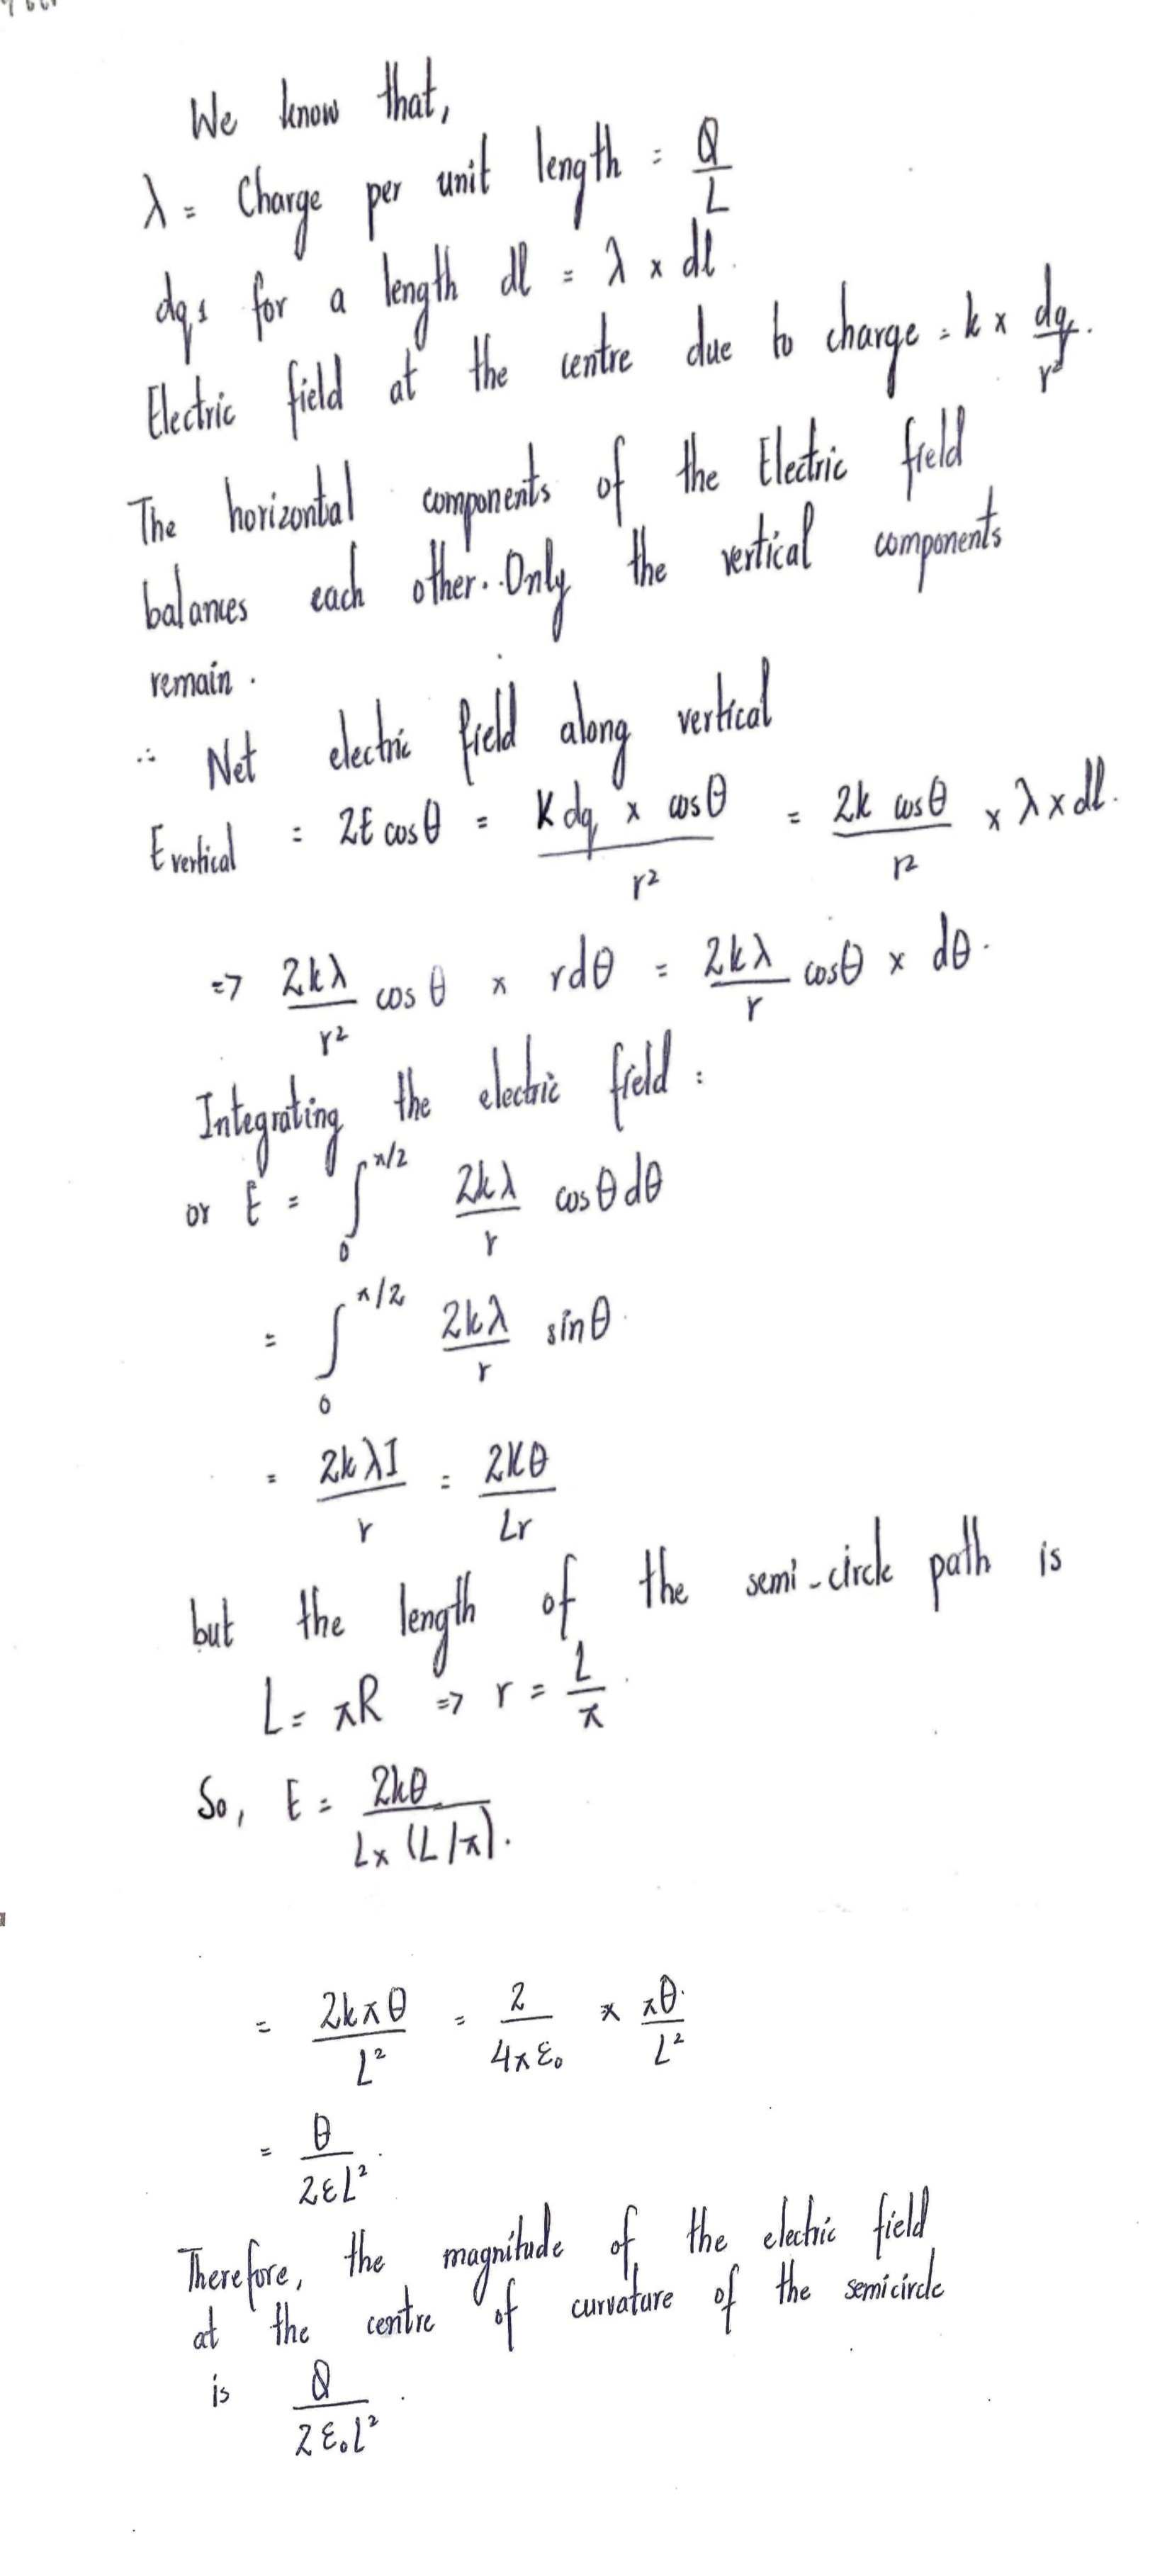 We know that,
λ = Charge per unit length = Q/L
dq, for a length dl = λ × dl.
Electric field at the centre due to charge = k × dq/r²
The horizontal components of the Electric field
balances each other. Only the vertical components
remain.
∴ Net electric field along vertical
E vertical = 2E cos θ = K dq × cos θ / r² = 2k cos θ / r² × λ × dl.
=> 2kλ/r² cos θ × rdθ = 2kλ/r cosθ × dθ.
Integrating the electric field :
or E = ∫₀^π/2 2kλ/r cos θ dθ
= ∫₀^π/2 2kλ/r sin θ
= 2kλI/r = 2Kθ/Lr
but the length of the semi-circle path is
L = πR => r = L/π.
So, E = 2kθ/L×(L/π).
= 2kπθ/L² = 2/4πε₀ × πθ/L²
= θ/2εL².
Therefore, the magnitude of the electric field
at the centre of curvature of the semicircle
is Q/2ε₀L².